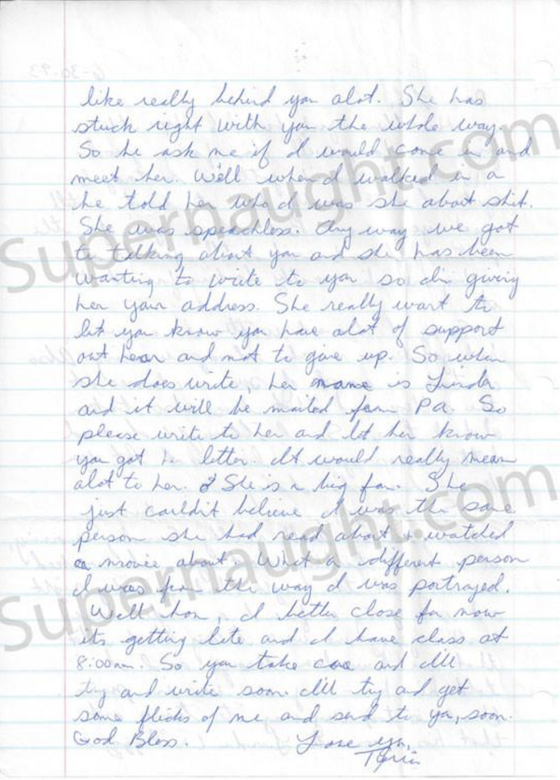 like really behind you alot. She has
stuck right with you the whole way.
So he ask me if I would come in and
meet her. Well when I walked in a
he told her who I was she about shit.
She was speachless. Any way we got
to talking about you and she has been
wanting to write to you so Im giving
her your address. She really want to
let you know you have alot of support
out hear and not to give up. So when
she does write, her name is Linda
and it will be mailed from PA. So
please write to her and let her know
you got h letter. It would really mean
alot to her. She is a big fan. She
just couldn't believe I was the same
person she had read about & watched
a movie about. What a different person
I was from the way I was portrayed.
Well hon, I better close for now
its getting late and I have class at
8:00am. So you take care and I'll
try and write soon. I'll try and get
some flicks of me and send to you, soon.
God Bless. Love you,
Supernaught.com
Supernaught.com